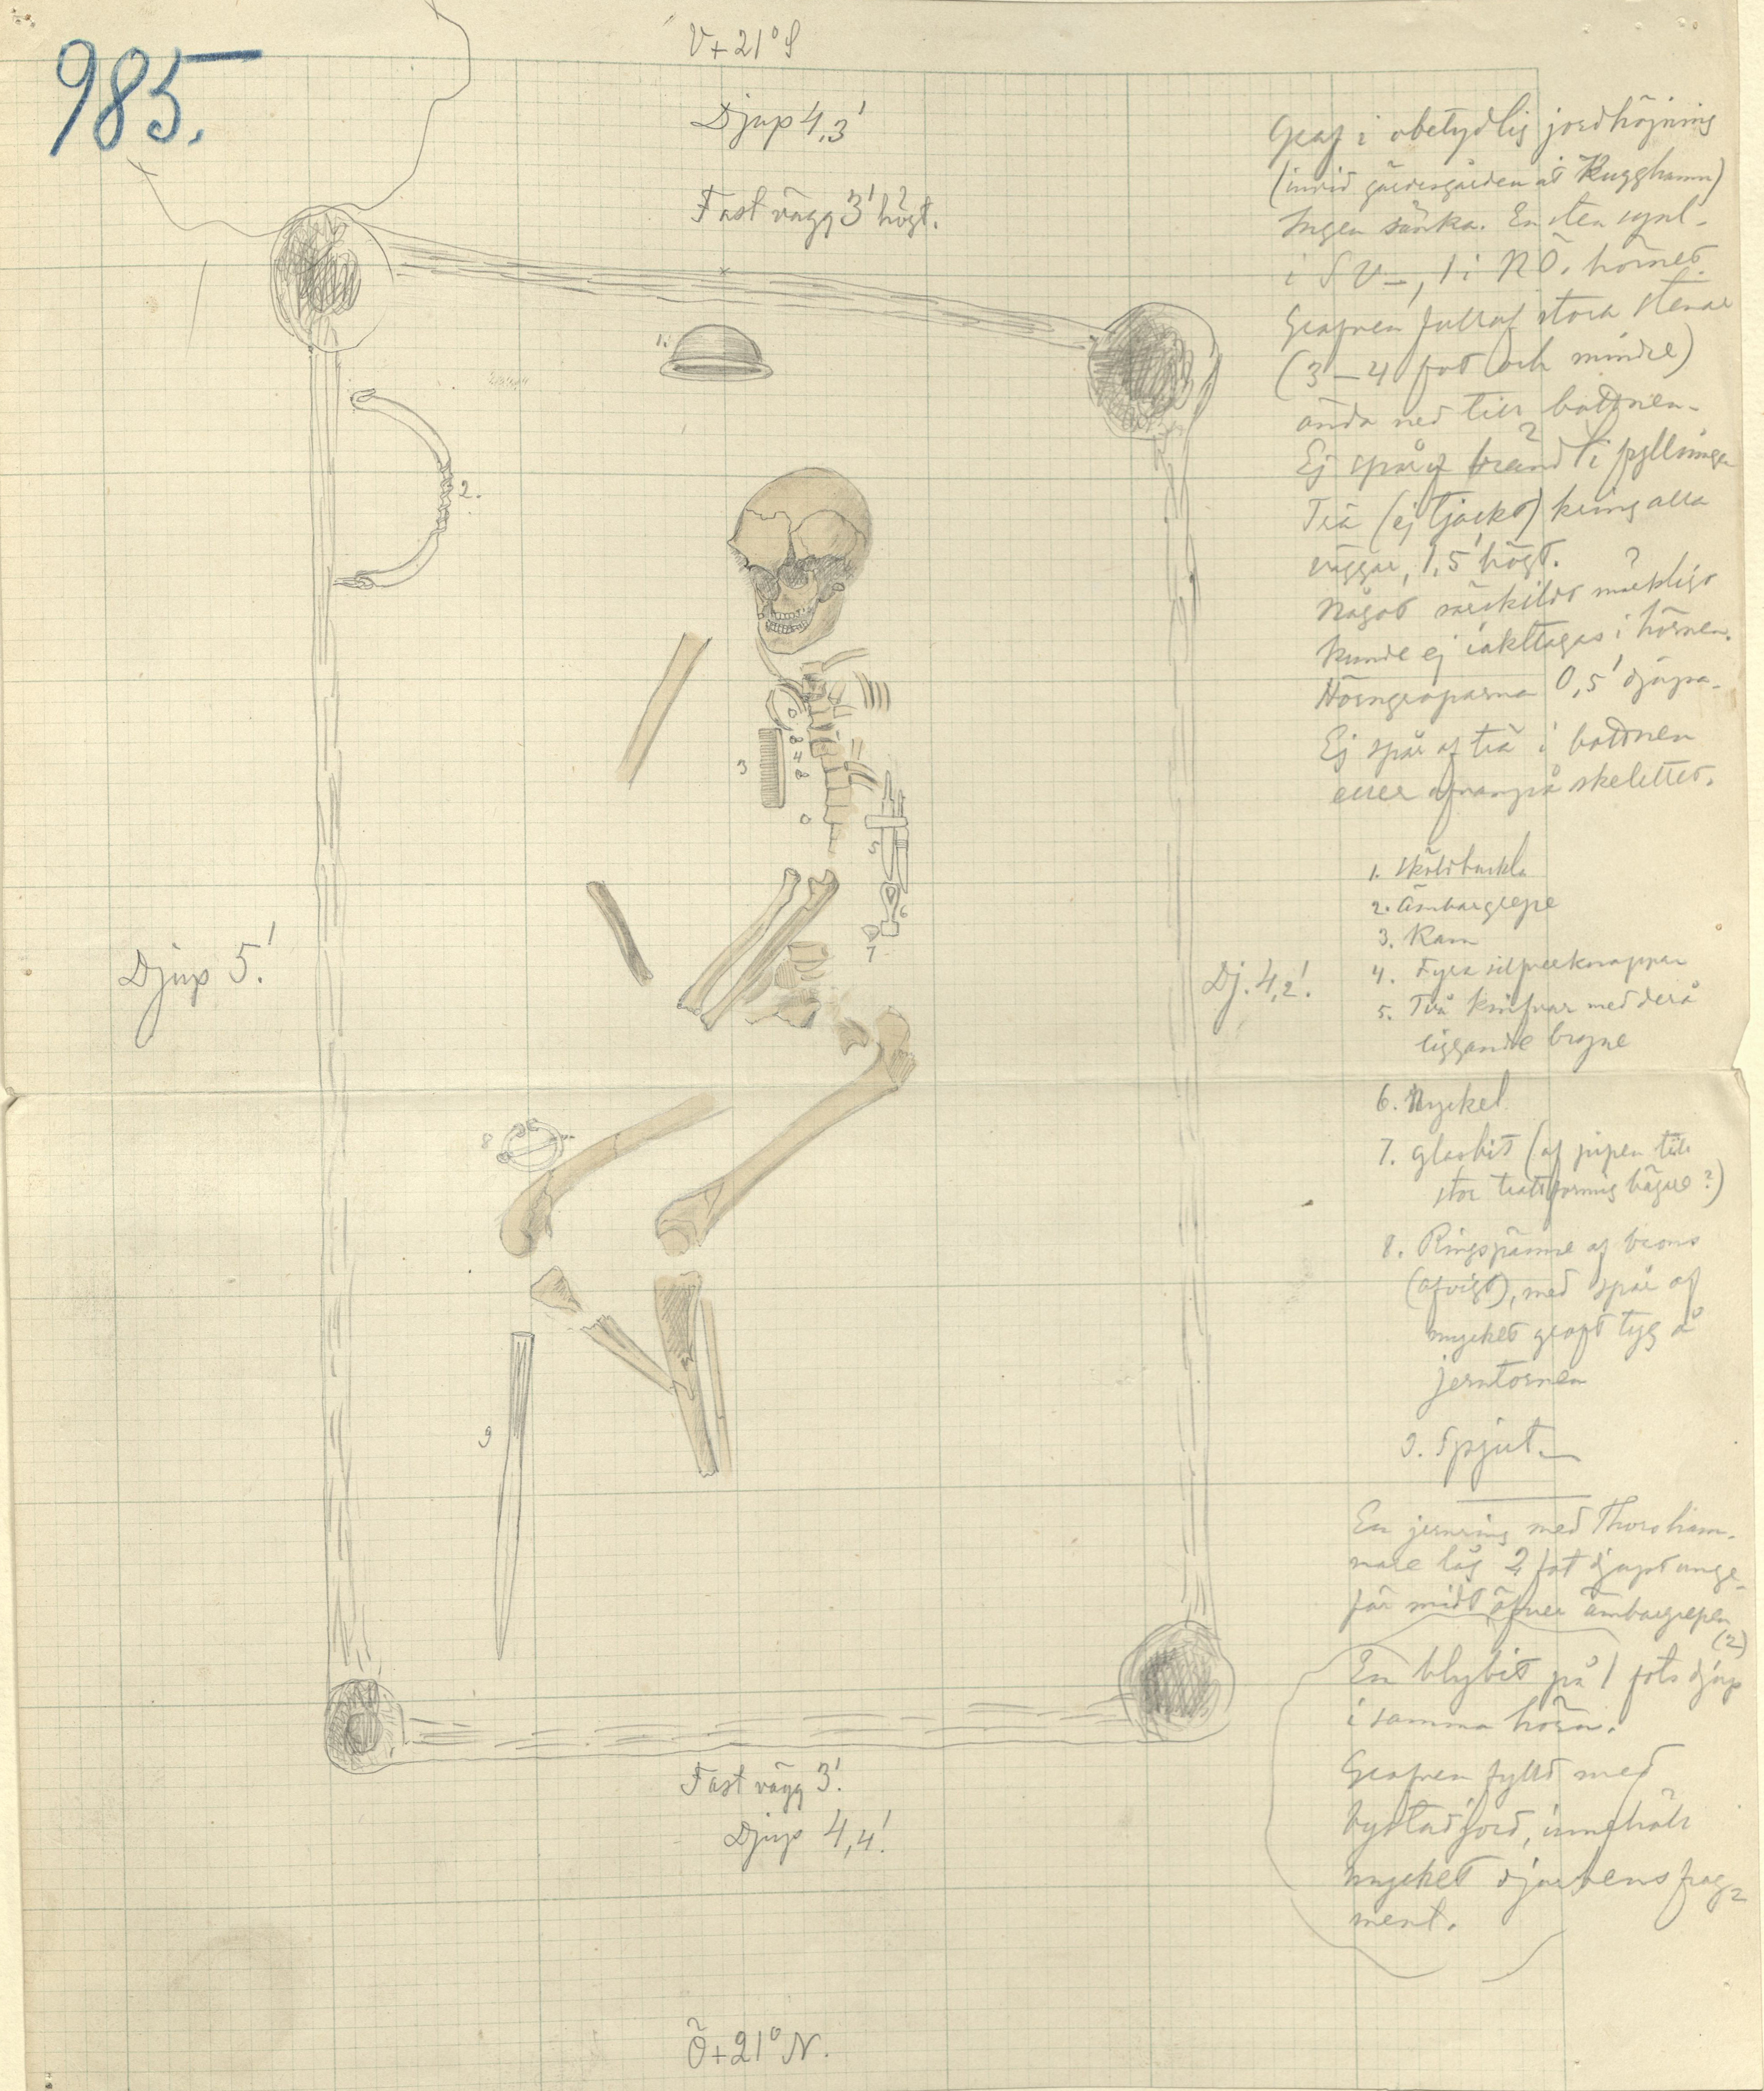 985.
V+21°S
Djup 4,3'
Fast vägg 3' högt.
1.
2.
3
4
5
6
7
8
9
Djup 5'.
Dj. 4,2'.
Fast vägg 3'.
Djup 4,4'.
Ö+21°N.
Graf i obetydlig jordhöjning
(invid gärdesgården åt Kugghamn)
Ingen sänka. En sten synl.
i SV–, 1 i NÖ. hörnet.
Grafven full af stora stenar
(3–4 fot och mindre)
ända ned till bottnen.
Ej spår af brand i fyllningen
Trä (ej tjockt) kring alla
väggar, 1,5' högt.
Något särskildt märkligt
kunde ej iakttagas i hörnen.
Hörngroparna 0,5' djupa.
Ej spår af trä i bottnen
eller ofvanpå skelettet.
1. Sköldbuckla
2. Ämbargrepe
3. Kam
4. Fyra silfverknappar
5. Två knifvar med derå
liggande bryne
6. Nyckel
7. glasbit (af pipen till
stor trattformig bägare?)
8. Ringspänne af brons
(afvigt), med spår af
mycket groft tyg å
jerntornen
9. Spjut.
En jernring med Thorsham-
mare låg 2 fot djupt unge-
fär midt öfver ämbargrepen
(2)
En blybit på 1 fots djup
i samma hörn.
Grafven fylld med
bystadsjord, innehöll
mycket djurbensfrag-
ment.